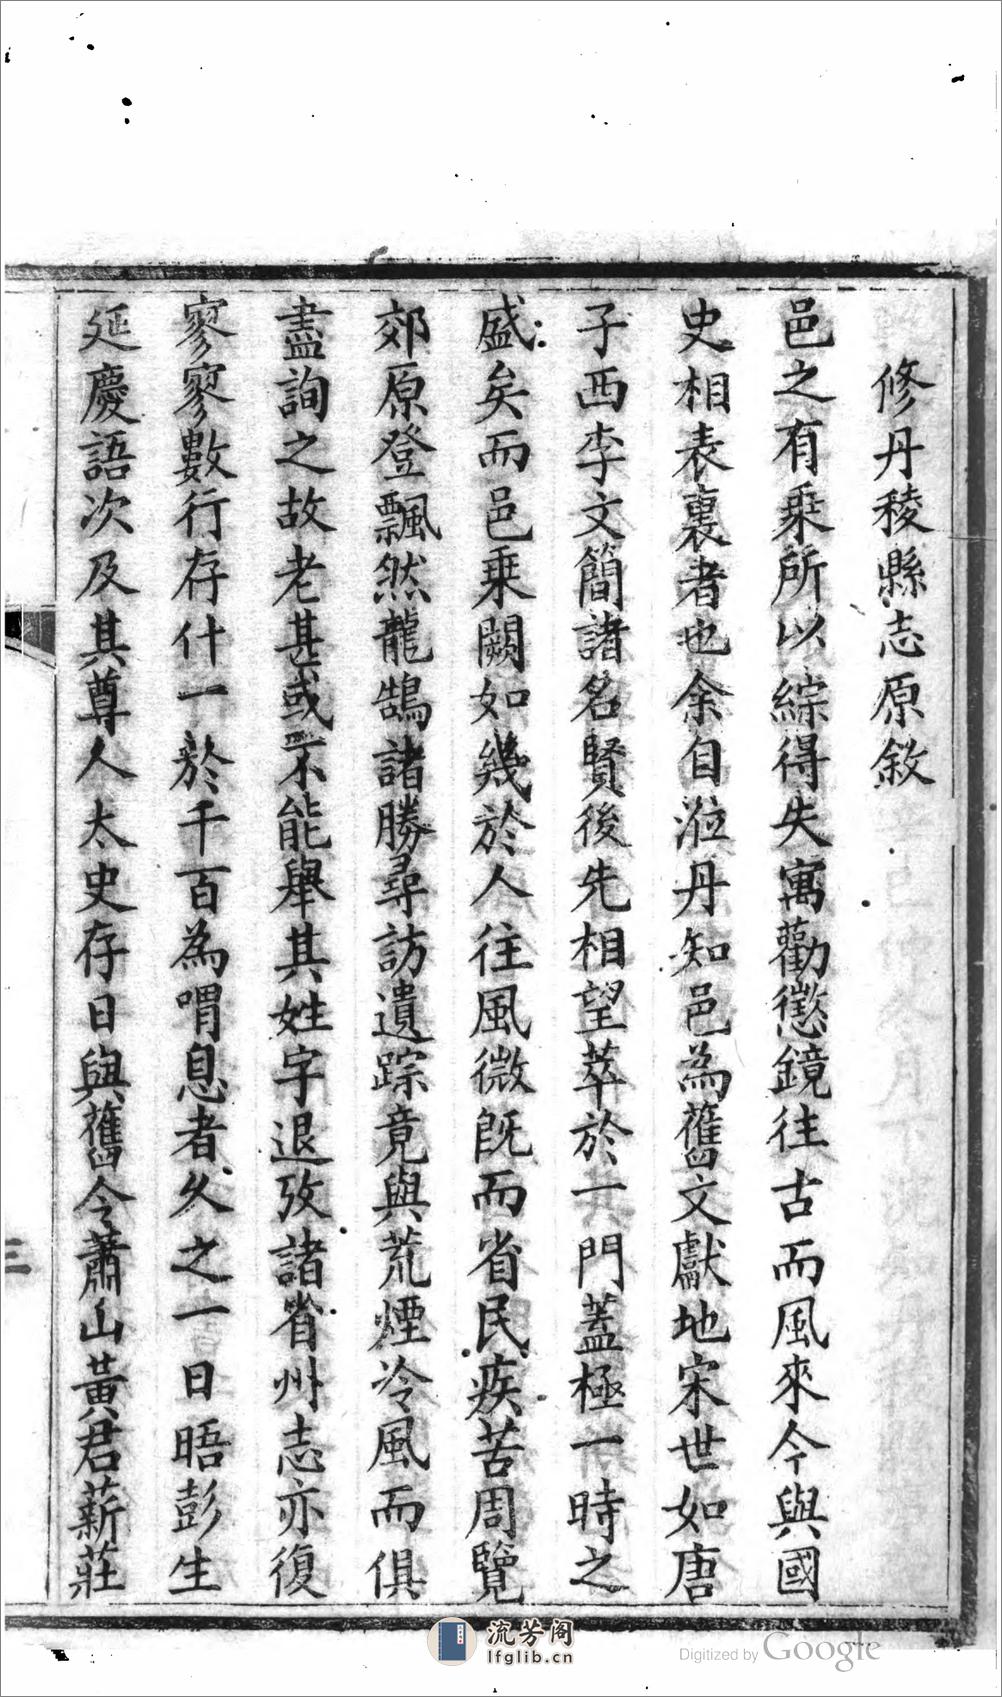 修丹稜縣志原敘
邑之有乗所以綜得失寓勸懲鏡往古而風來今與國
史相表裏者也余自涖丹知邑為舊文獻地宋世如唐
子西李文簡諸名賢後先相望萃於一門蓋極一時之
盛矣而邑乗闕如幾於人往風微旣而省民疾苦周覽
郊原登飄然龍鵠諸勝尋訪遺踪竟與荒煙冷風而俱
盡詢之故老甚或不能舉其姓字退攷諸省州志亦復
寥寥數行存什一於千百為喟息者久之一日晤彭生
延慶語次及其尊人太史存日與舊令蕭山黃君薪莊
三
流芳阁
lfglib.cn
Digitized by Google